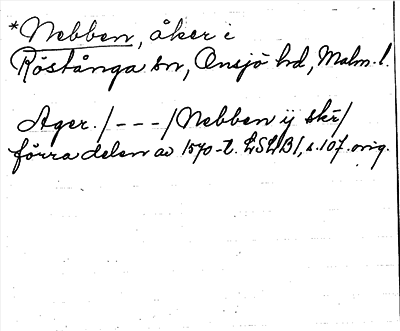 *Nebben, åker i
Röstånga sn, Onsjö hd, Malm. l.
Ager. /---/ Nebben ij skr/
förra delen av 1570-t. LSLB1, s. 107. orig.